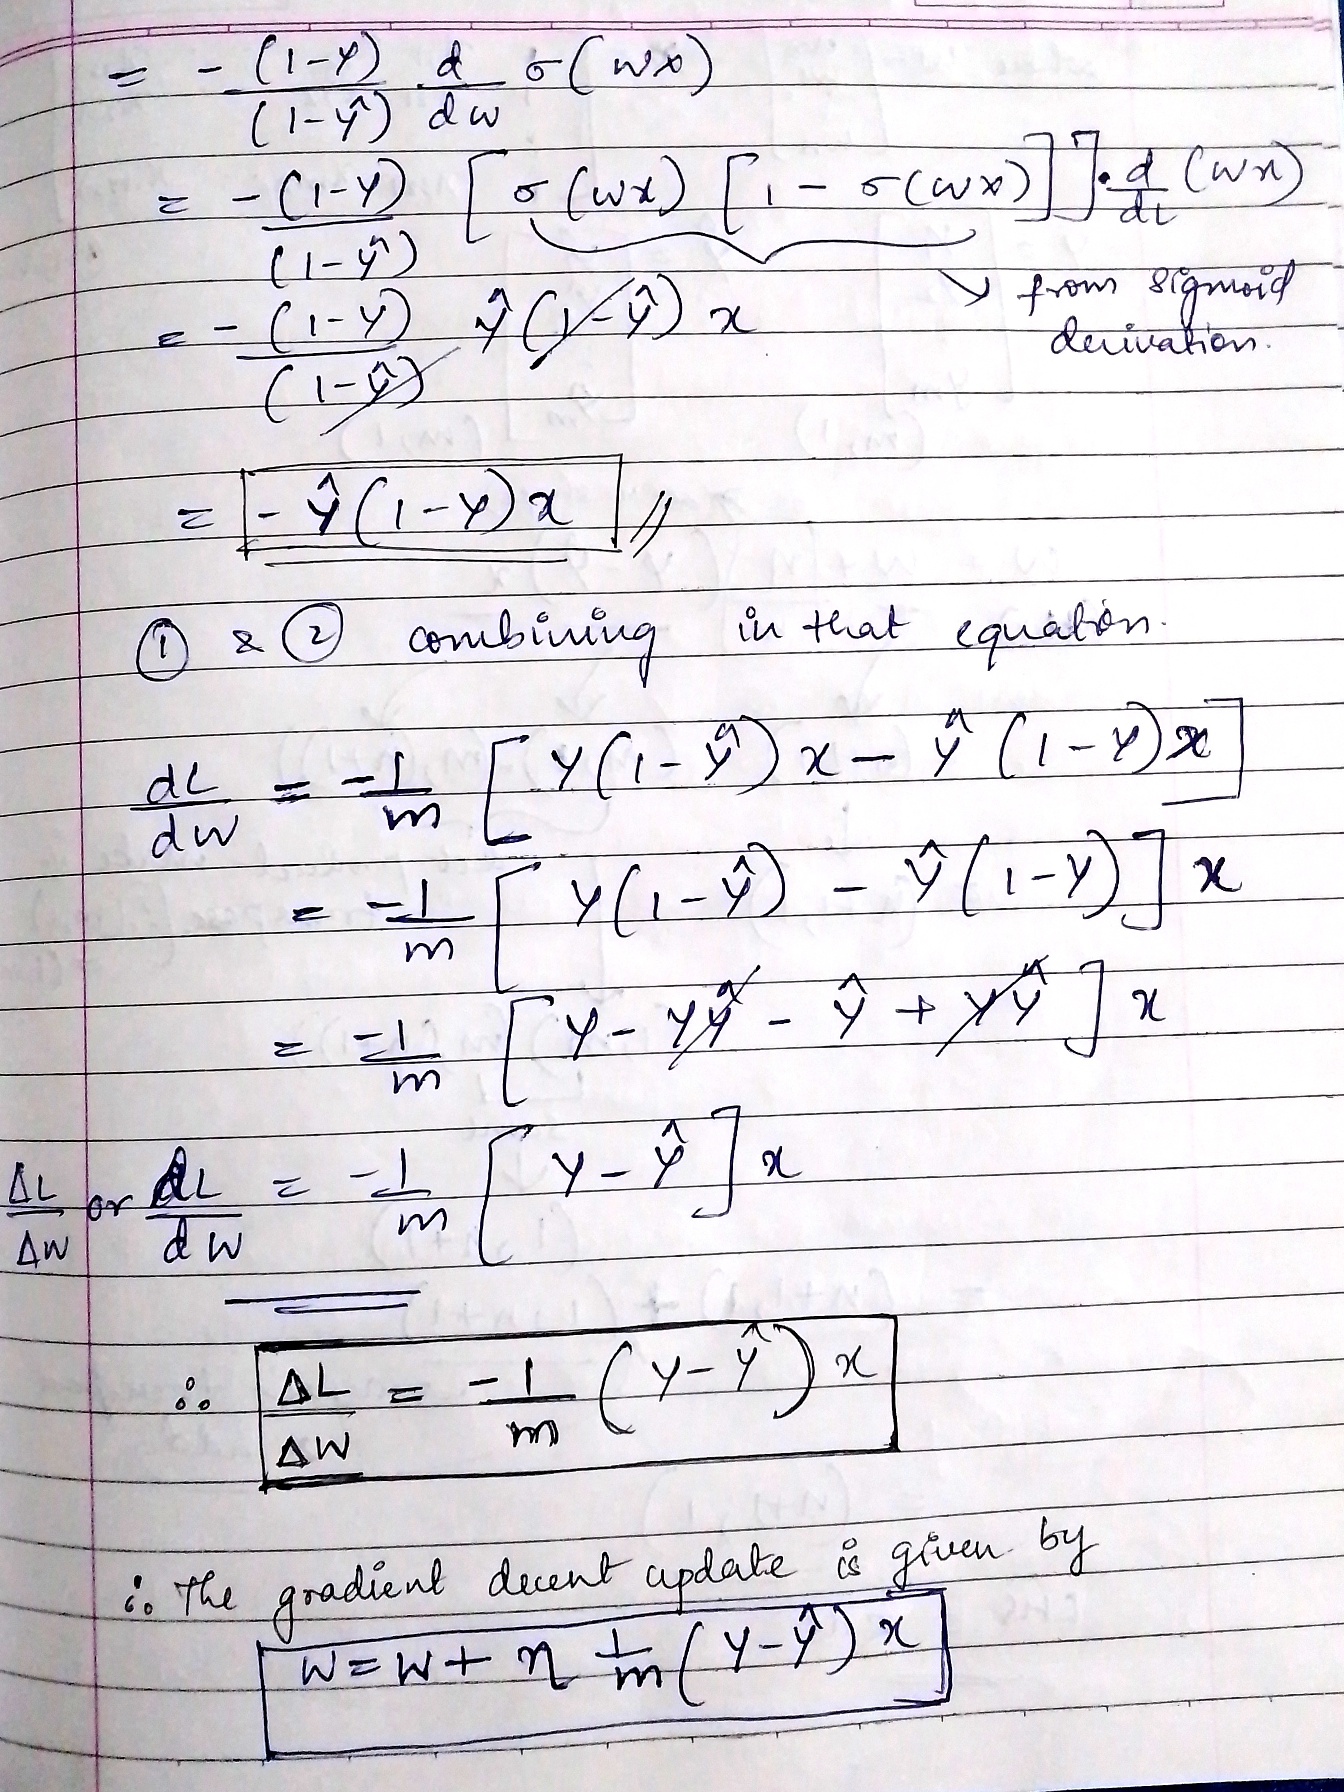 = - (1-Y)/(1-Ŷ) d/dw σ(wx)
= - (1-Y)/(1-Ŷ) [σ(wx) [1 - σ(wx)]] · d/dL (wx)
↘ from sigmoid
derivation.
= - (1-Y)/(1-Ŷ) Ŷ(1-Ŷ) x
= - Ŷ(1-Y)x //
① & ② combining in that equation.
dL/dW = -1/m [Y(1-Ŷ)x - Ŷ(1-Y)x]
= -1/m [Y(1-Ŷ) - Ŷ(1-Y)] x
= -1/m [Y - YŶ - Ŷ + YŶ] x
ΔL/ΔW or dL/dW = -1/m [Y-Ŷ] x
∴ ΔL/ΔW = -1/m (Y-Ŷ) x
∴ The gradient decent update is given by
W=W+ η 1/m (Y-Ŷ) x